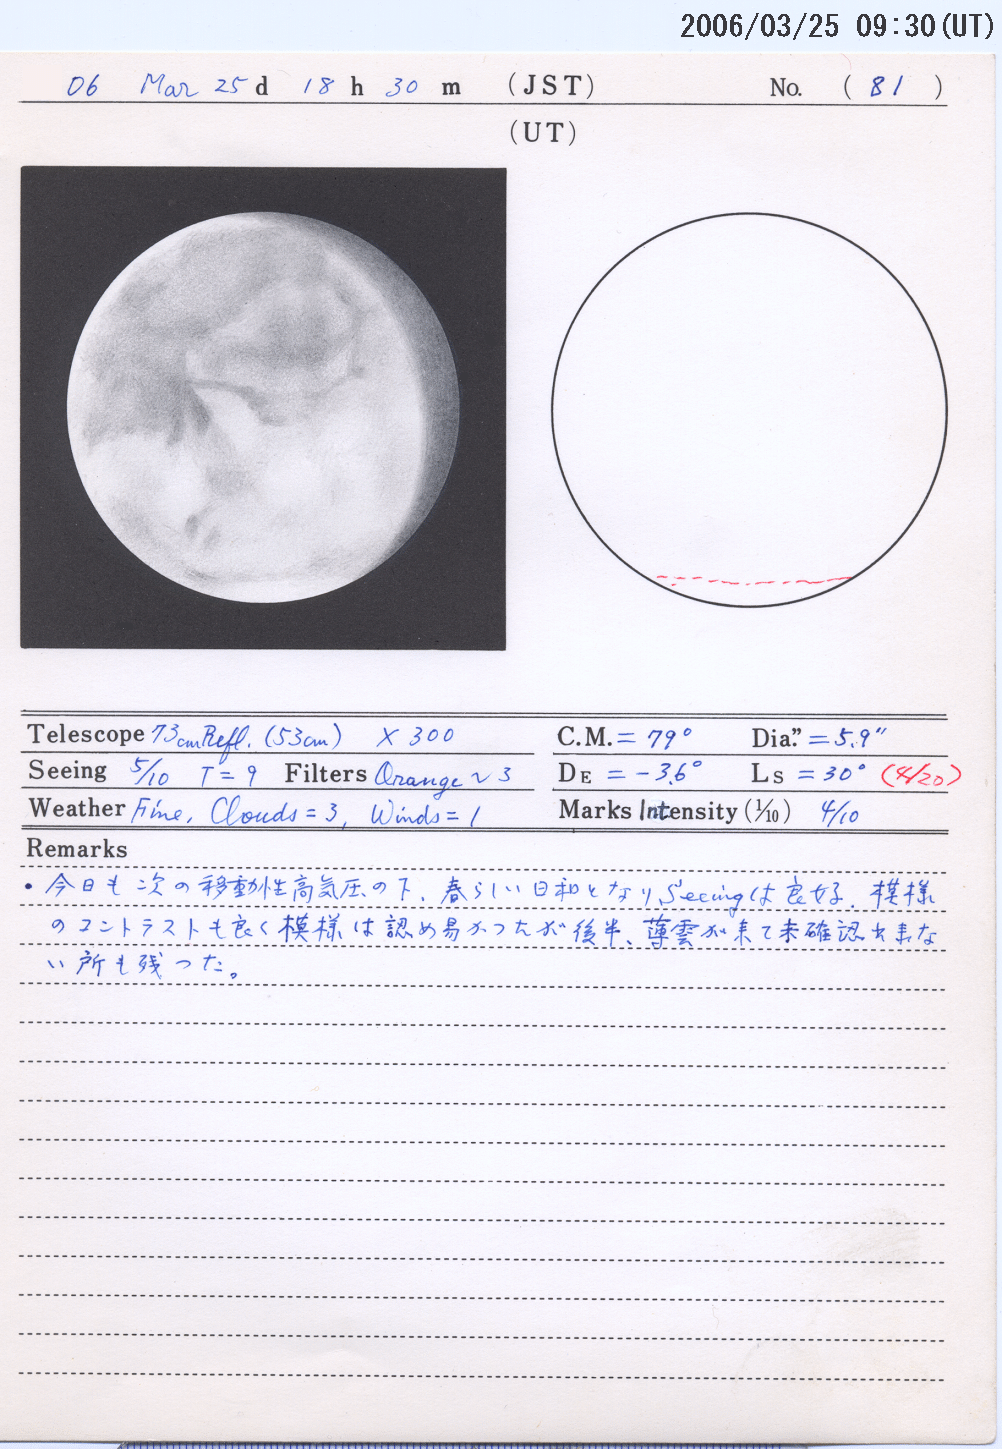 2006/03/25 09:30(UT)
06 Mar 25 d 18 h 30 m (JST) No. (81)
(UT)
Telescope 73cm Refl. (53cm) × 300
C.M. = 79° Dia." = 5.9"
Seeing 5/10 T = 9 Filters Orange ~ 3
DE = -3.6° Ls = 30° (4/20)
Weather Fine, Clouds = 3, Winds = 1
Marks Intensity (1/10) 4/10
Remarks
• 今日も次の移動性高気圧の下、春らしい日和となり、Seeingは良好。模様
のコントラストも良く模様は認め易かったが後半、薄雲が来て未確認出来な
い所も残った。